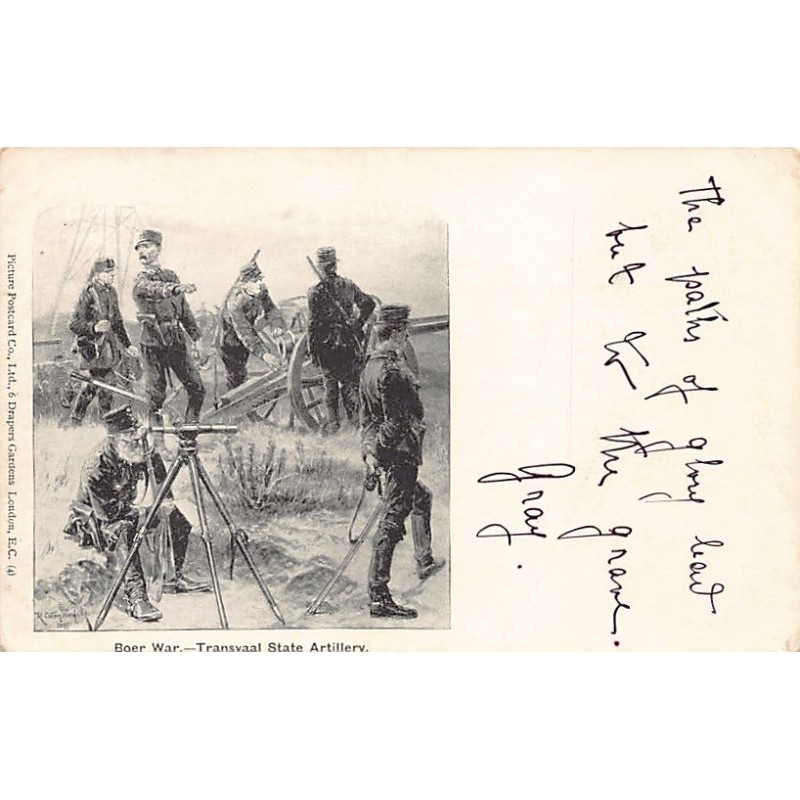 Picture Postcard Co., Ltd., 6 Drapers Gardens London, E.C. (4)
Boer War.—Transvaal State Artillery.
The paths of glory lead
but to the grave.
Gray.